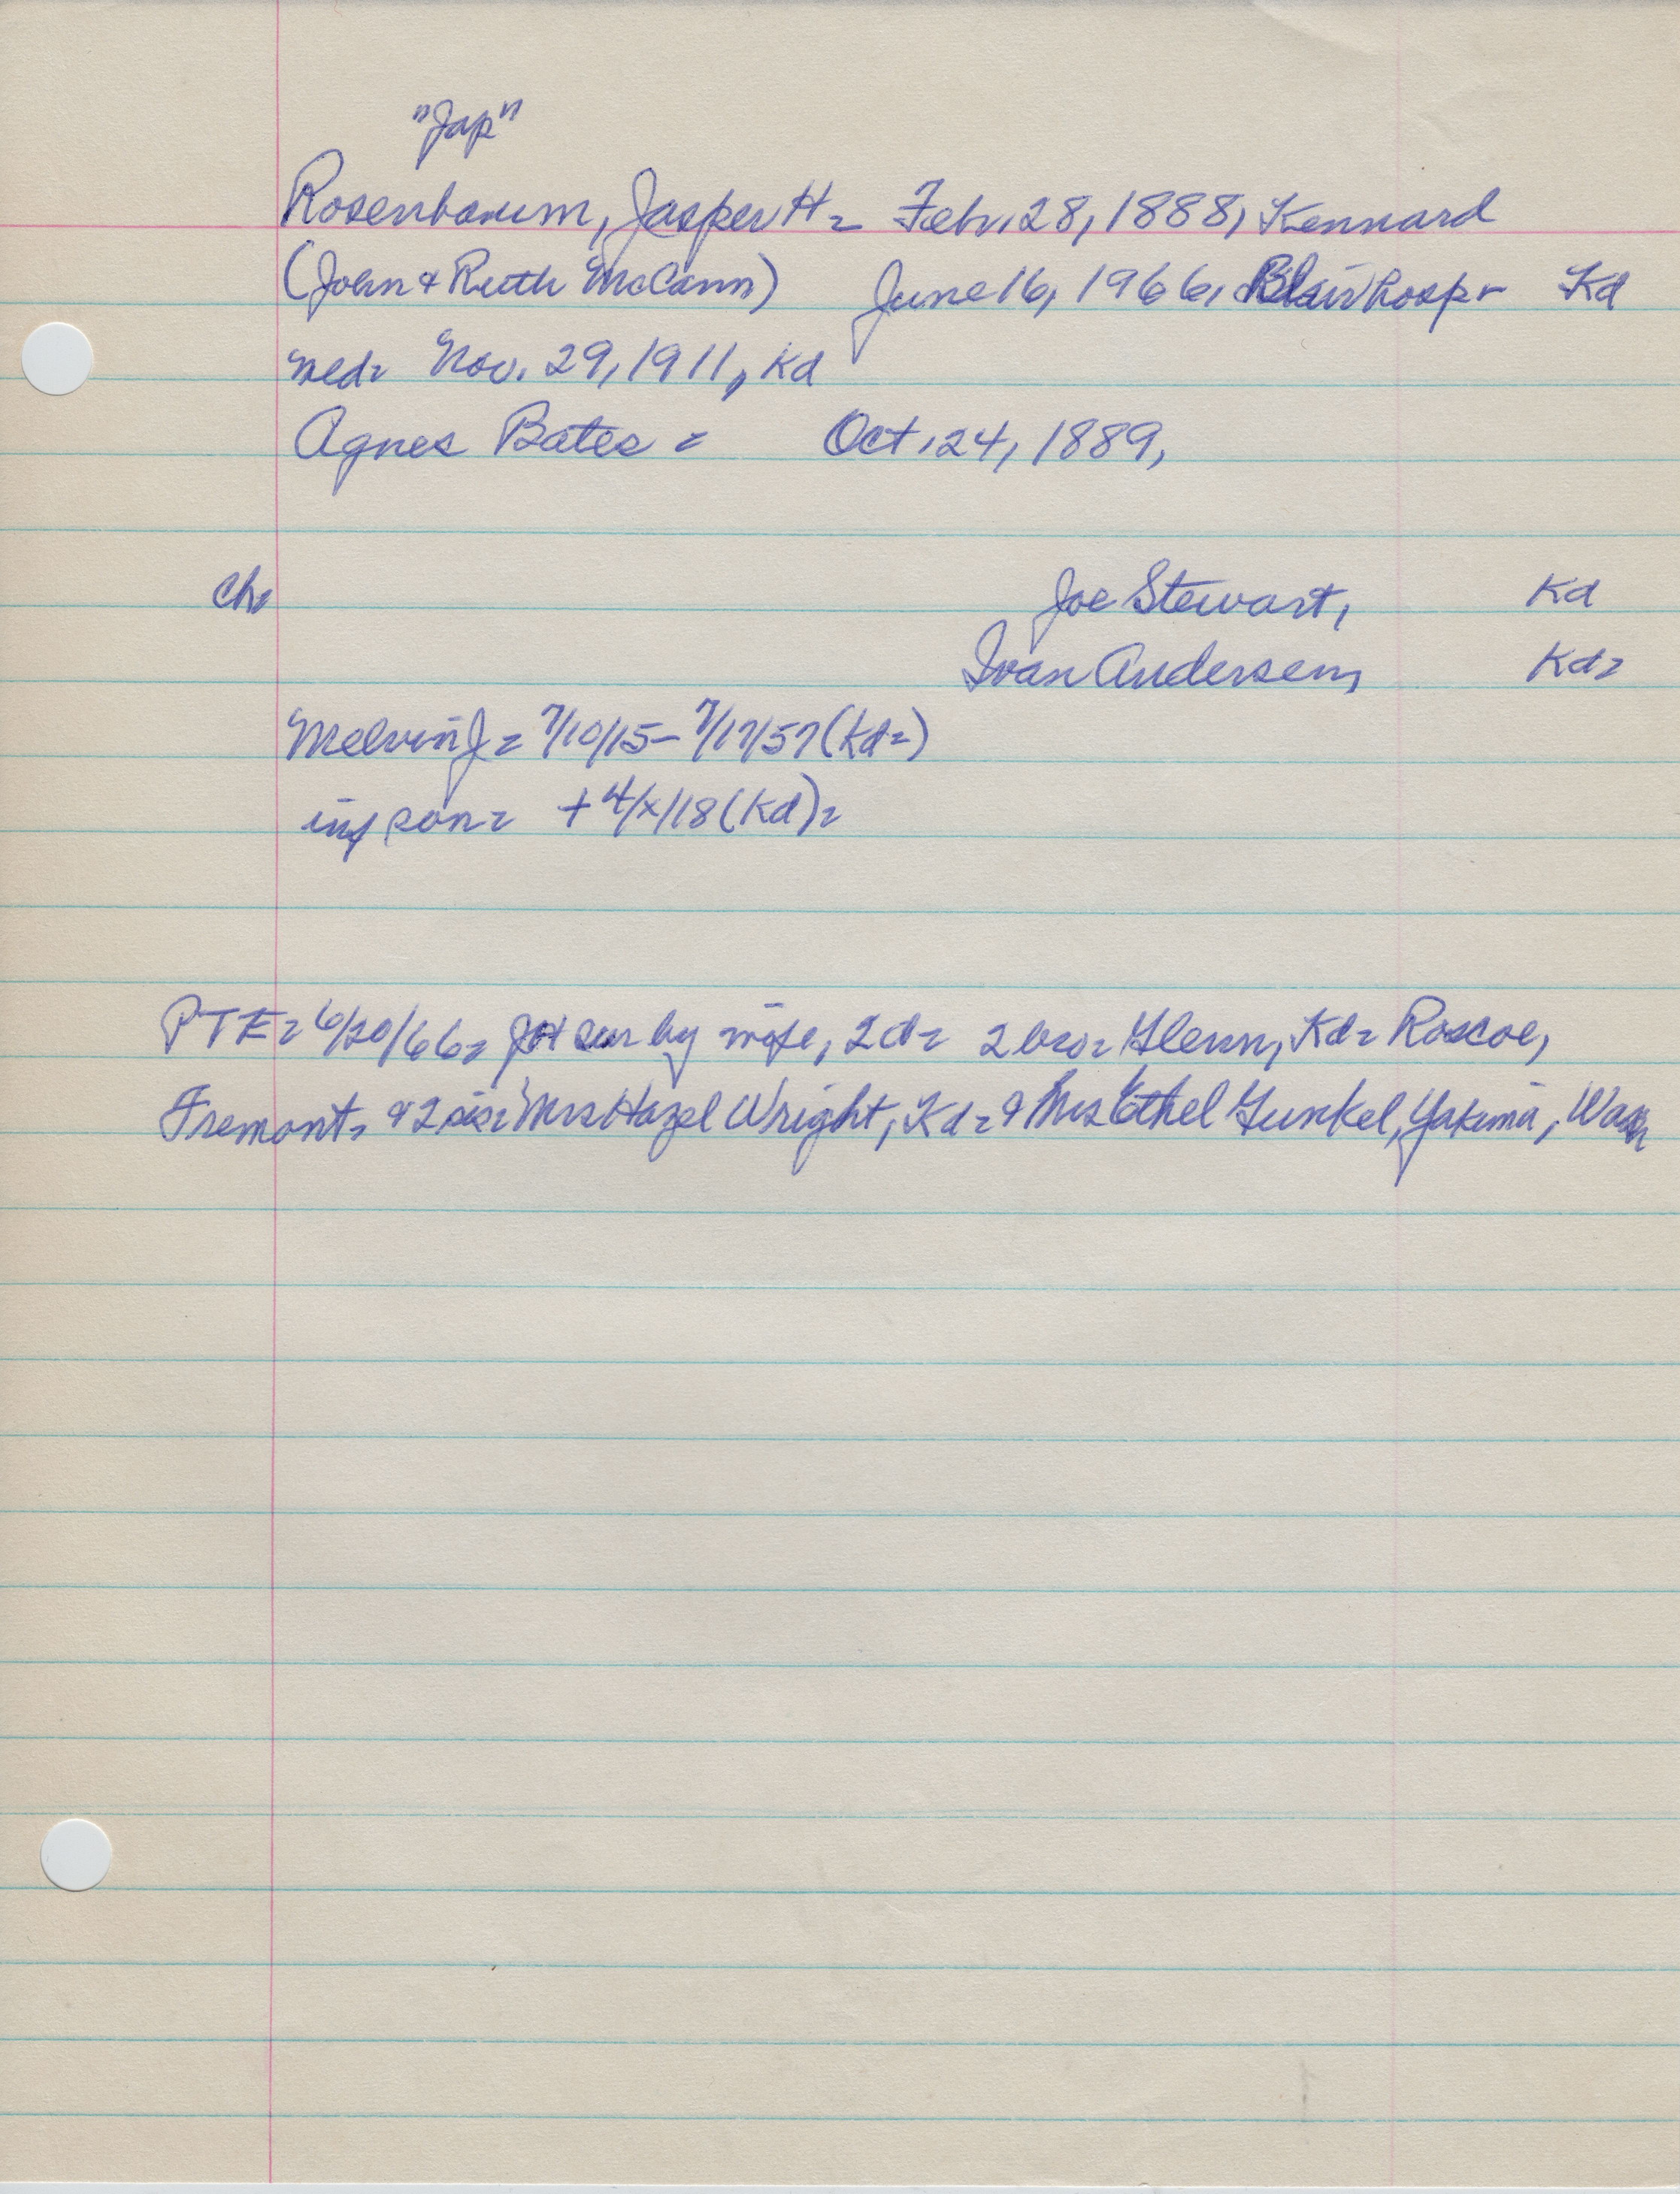 "Jap"
Rosenbaum, Jasper H= Feb. 28, 1888, Kennard
(John + Ruth McCann) June 16, 1966, Blair hosp- Kd
med= Nov. 29, 1911, Kd
Agnes Bates = Oct. 24, 1889,
Ch. Joe Stewart, Kd
Ivan Andersen, Kd=
Melvin J= 7/10/15- 7/17/57 (Kd=)
inf son= + 4/x/18 (Kd)=
PTE= 6/20/66= JH sur by wife, 2 d= 2 bro= Glenn, Kd= Roscoe,
Fremont= & 2 sis= Mrs Hazel Wright, Kd= & Mrs Ethel Gunkel, Yakima, Wash